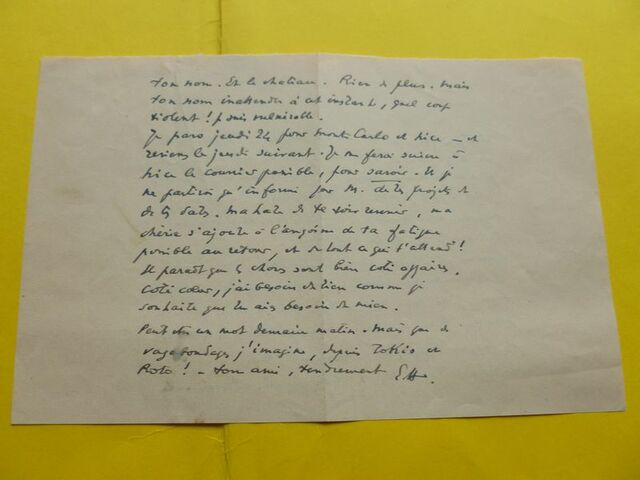 ton nom. Et le château. Rien de plus. Mais
ton nom inattendu à cet instant, quel coup
violent! J'suis vulnérable.
Je pars jeudi 24 pour Monte Carlo et Nice — et
reviens le jeudi suivant. Je me ferai suivre à
Nice le courrier possible, pour savoir. Et je
ne partirai qu'informé par M. de tes projets et
de tes dates. Ma hâte de te voir revenir, ma
chérie s'ajoute à l'angoisse de ta fatigue
possible au retour, et de tout ce qui t'attend!
Il paraît que les choses sont bien côté affaires.
Côté cœur, j'ai besoin du tien comme je
souhaite que tu aies besoin du mien.
Peut être un mot demain matin. Mais que de
vagabondages, j'imagine, depuis Tokio et
! — ton ami, tendrement